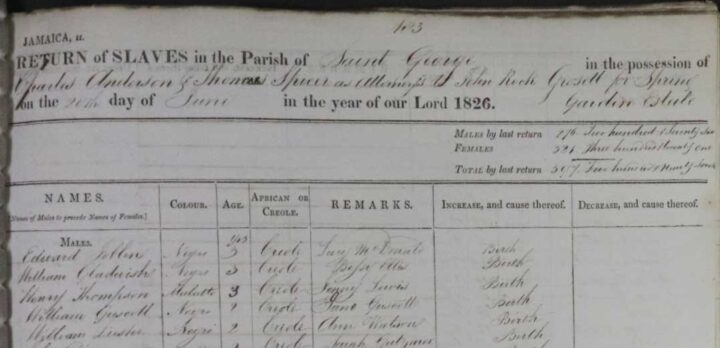 163
JAMAICA, ss.
RETURN of SLAVES in the Parish of Saint George in the possession of
Charles Anderson & Thomas Spicer as Attorneys to John Rock Grosett for Spring
Garden Estate
on the 20th day of June in the year of our Lord 1826.
MALES by last return 276 Two hundred & Seventy Six
FEMALES 321 Three hundred & twenty One
TOTAL by last return 597 Five hundred & Ninety Seven
NAMES. COLOUR. AGE. AFRICAN OR CREOLE. REMARKS. INCREASE, and cause thereof. DECREASE, and cause thereof.
(Names of Males to precede Names of Females.)
MALES. yrs
Edward Negro 3 Creole Birth
William Negro 3 Creole Bessy Ellis Birth
Henry Thompson Mulatto 3 Creole Lewis Birth
William Negro 2 Creole Jane Birth
William Negro 2 Creole Ann Watson Birth
Creole Sarah Birth